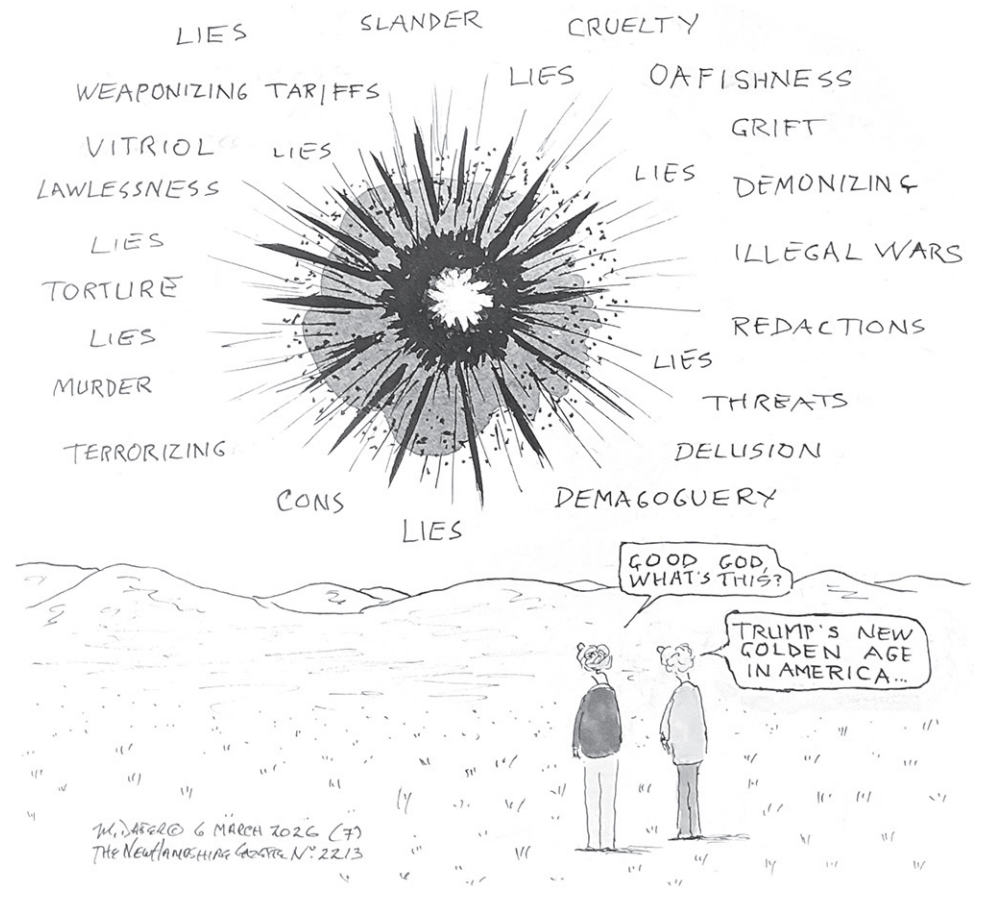 LIES
SLANDER
CRUELTY
WEAPONIZING TARIFFS
LIES
OAFISHNESS
GRIFT
VITRIOL
LIES
LIES
LAWLESSNESS
DEMONIZING
LIES
ILLEGAL WARS
TORTURE
LIES
REDACTIONS
LIES
MURDER
THREATS
TERRORIZING
DELUSION
CONS
DEMAGOGUERY
LIES
GOOD GOD,
WHAT'S THIS?
TRUMP'S NEW
GOLDEN AGE
IN AMERICA...
© 6 MARCH 2026 (7)
THE NEW HAMPSHIRE GAZETTE Nº 2213